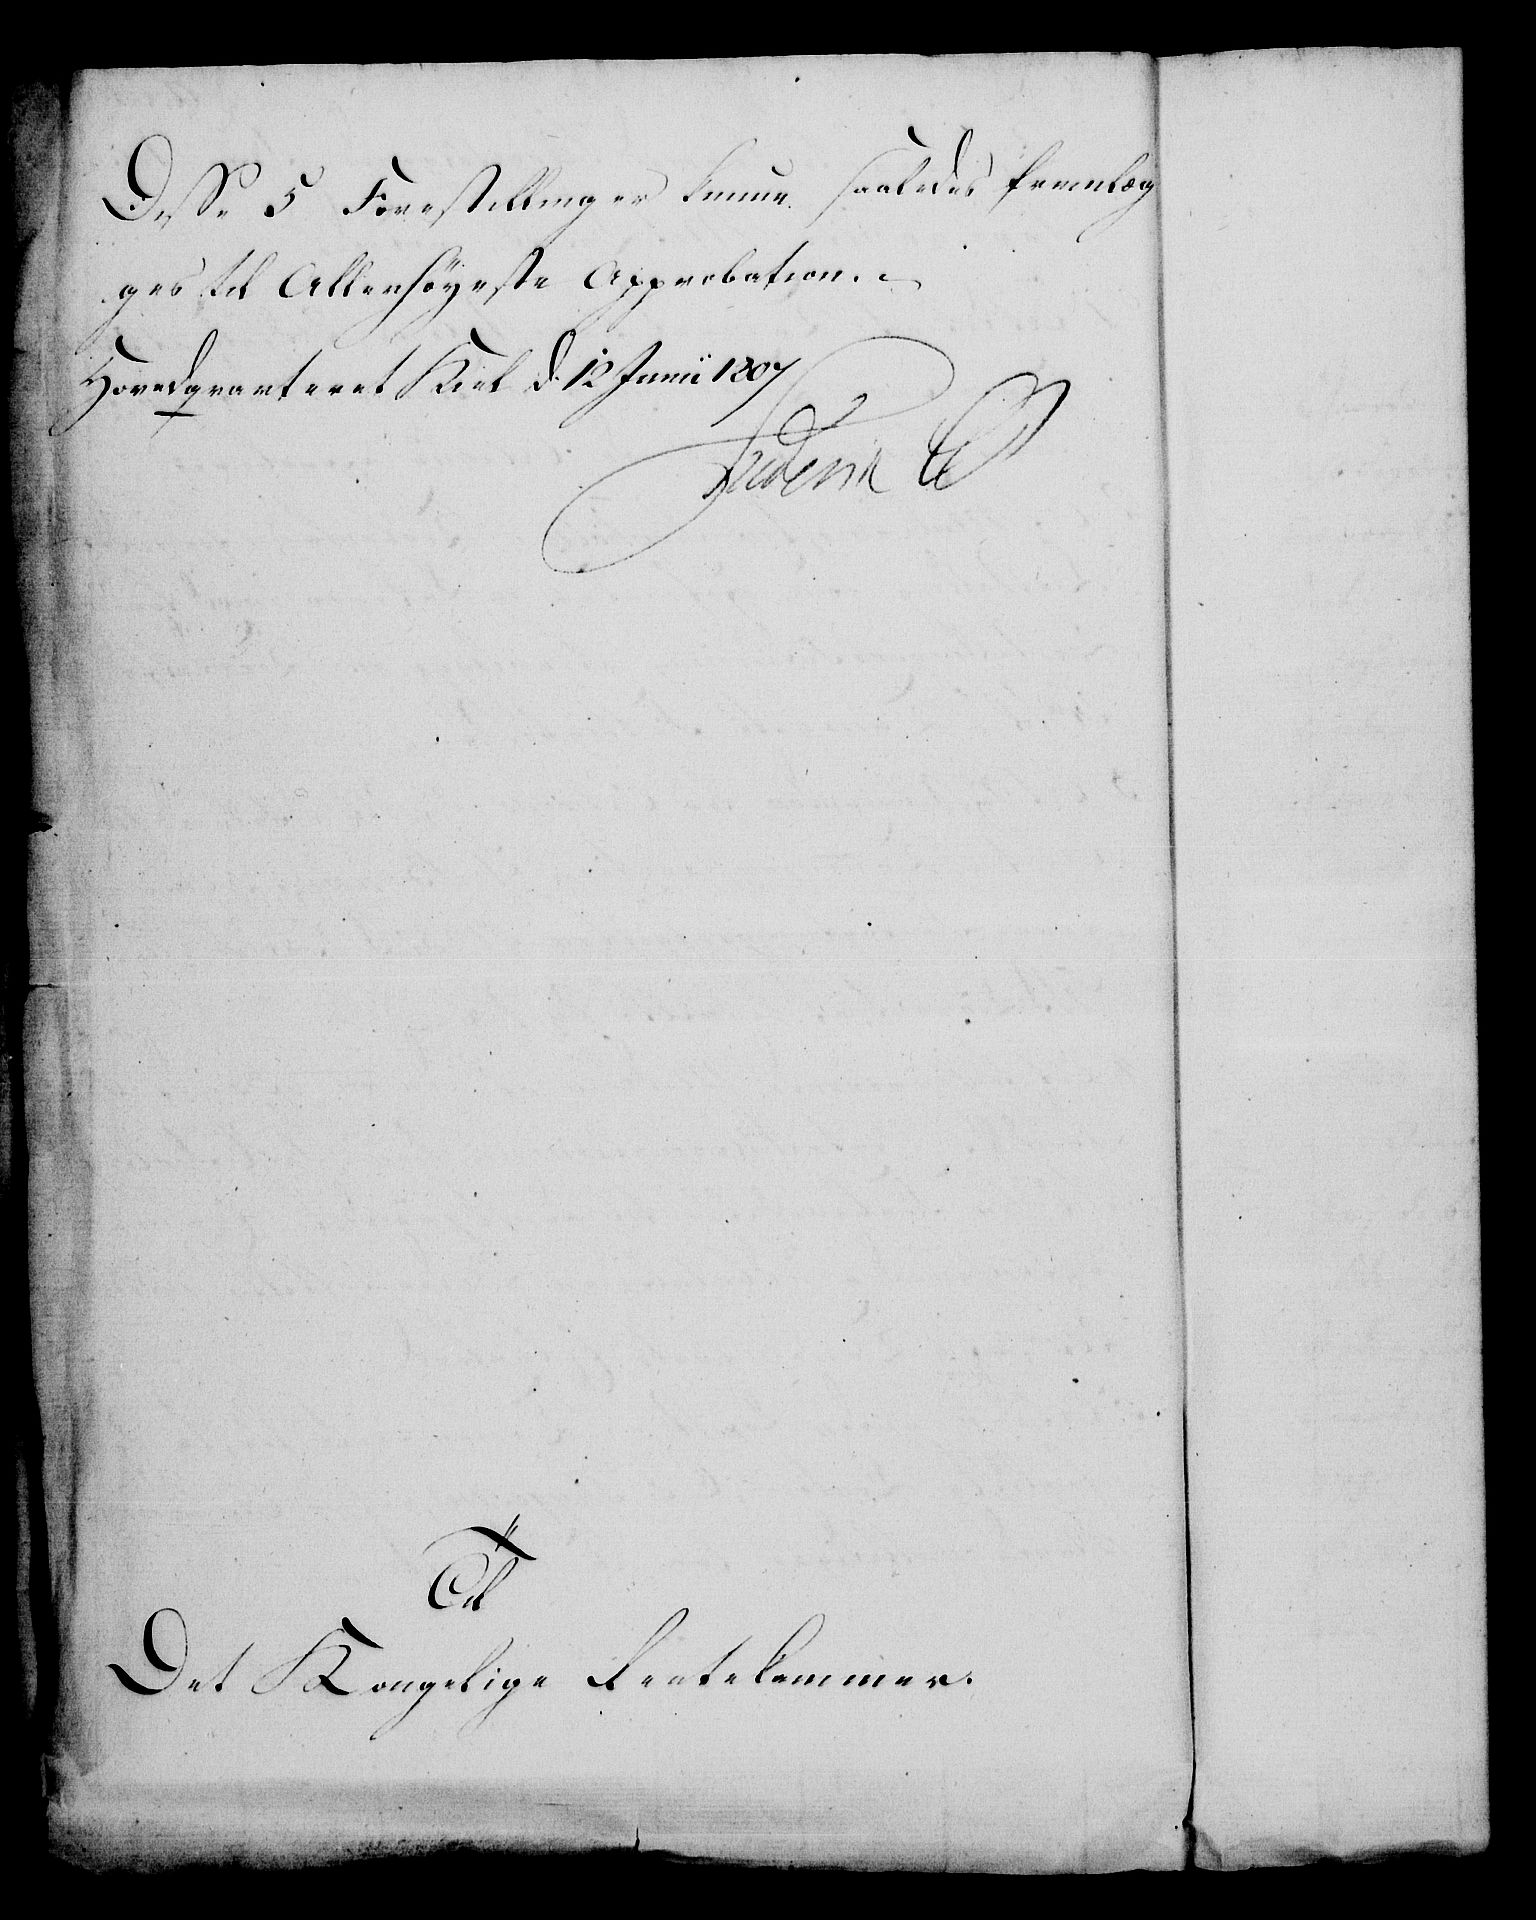 Desse 5 Forestillinger kunne saaledes fremlæg
ges til Allerhöyeste Approbation.
Hovedqvarteret Kiel d. 12 Junii 1807
Frederik
Til
Det Kongelige Rentekammer.